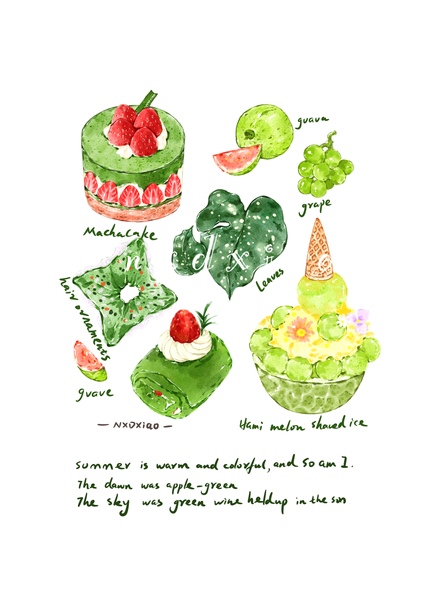 guava
grape
Machacake
ndxiao
Leaves
hair ornaments
guave
NXDXIAO
Hami melon shaved ice
summer is warm and colorful, and so am I.
The dawn was apple-green
The sky was green wine heldup in the son